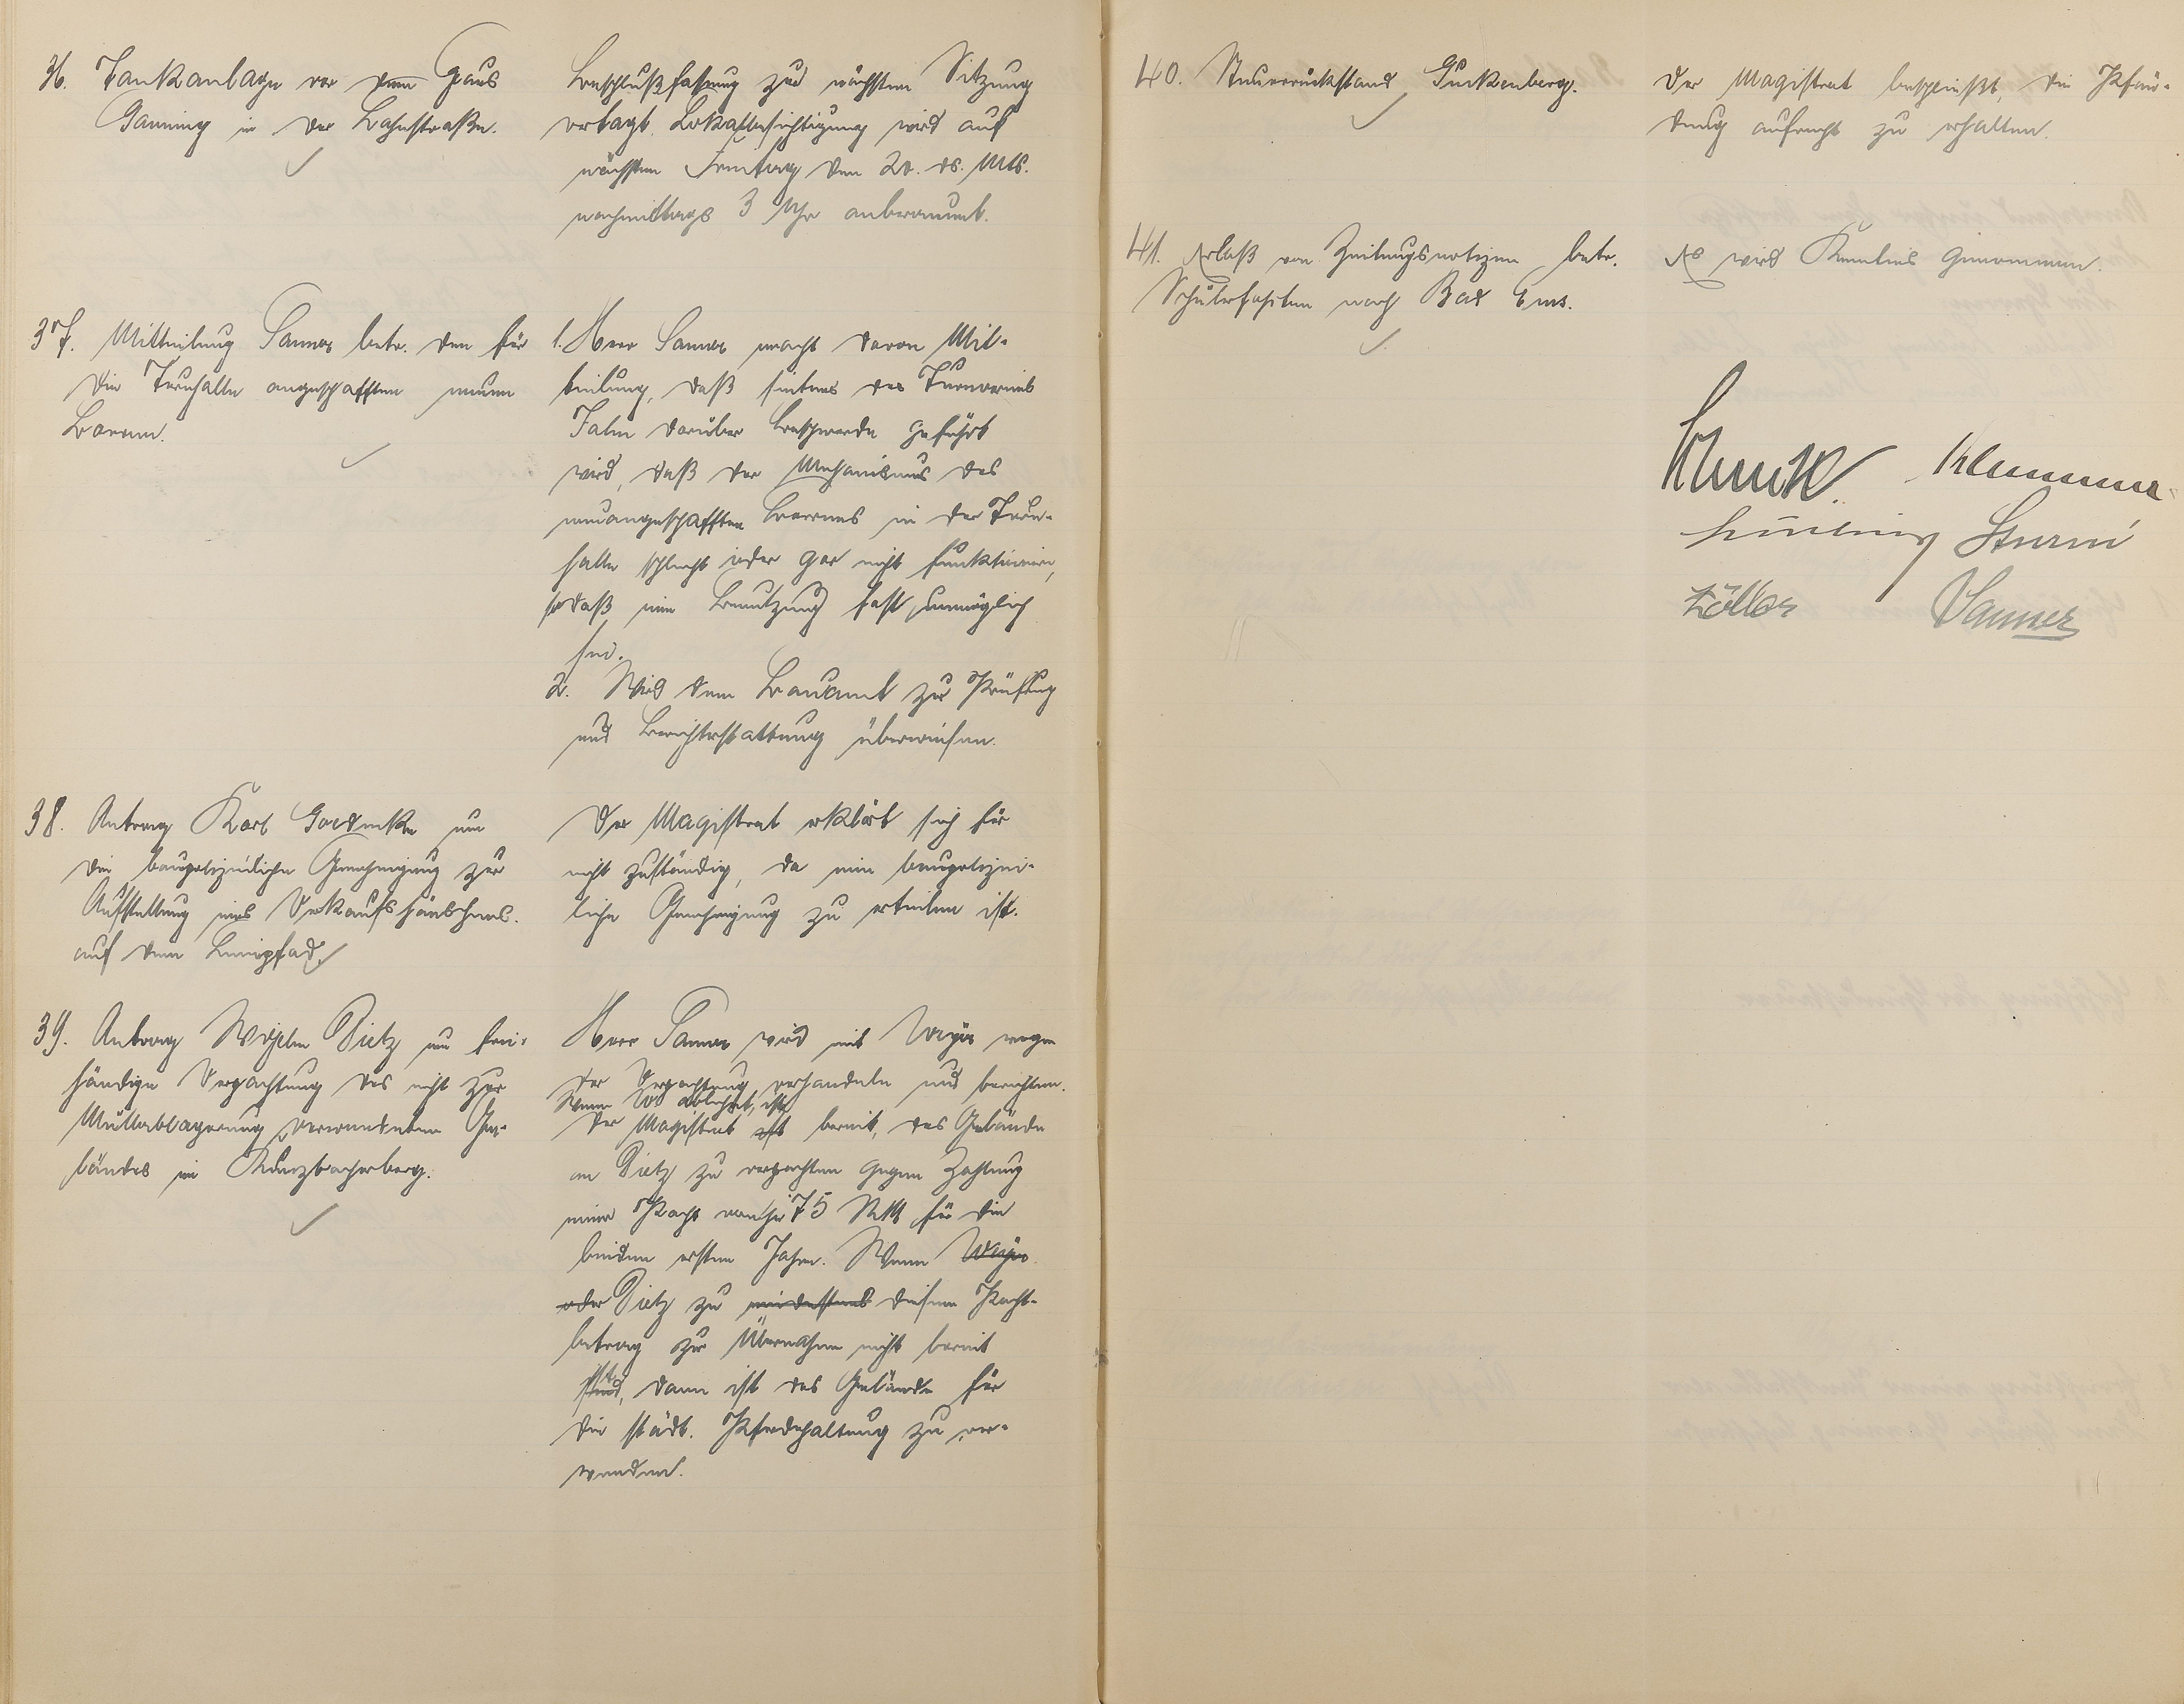 36. Tankanlage vor dem Haus
Ganning in der Bahnstraße.
Beschlußfassung zur nächsten Sitzung
vertagt. Lokalbesichtigung wird auf
nächsten Freitag den 20. ds. Mts.
nachmittags 3 Uhr anberaumt.
37. Mitteilung Sanner betr. den für
die Turnhalle angeschafften neuen
Barren.
1. Herr Sanner macht davon Mit-
teilung, daß seitens des Turnvereins
Jahn darüber Beschwerde geführt
wird, daß der Mechanismus des
neuangeschafften Barrens in der Turn-
halle schlecht oder gar nicht funktioniere,
sodaß eine Benutzung fast unmöglich
sei.
2. Wird dem Bauamt zur Prüfung
und Berichterstattung überwiesen.
38. Antrag Karl Goedecke um
die baupolizeiliche Genehmigung zur
Aufstellung eines Verkaufshäuschens
auf dem Leinpfad.
Der Magistrat erklärt sich für
nicht zuständig, da eine baupolizei-
liche Genehmigung zu erteilen ist.
39. Antrag Wilhelm Dietz um frei-
händige Verpachtung des nicht zur
Müllablagerung verwendeten Ge-
ländes im
Herr Sanner wird mit wegen
der Verpachtung verhandeln und berichten.
Wenn ablehnt, ist
der Magistrat ist bereit, das Gelände
an Dietz zu verpachten gegen Zahlung
einer Pacht von je 75 RM für die
beiden ersten Jahre. Wenn
oder Dietz zu mindestens diesem Pacht-
betrag zur Übernahme nicht bereit
ist sind, dann ist das Gelände für
die städt. Pferdehaltung zu ver-
wenden.
40. Steuerrückstand Guckenberg.
Der Magistrat beschließt, die Pfän-
dung aufrecht zu erhalten.
41. Erlaß von Zeitungsnotizen betr.
Schülerfahrten nach Bad Ems.
Es wird Kenntnis genommen.
Sturm
Zöller Sanner